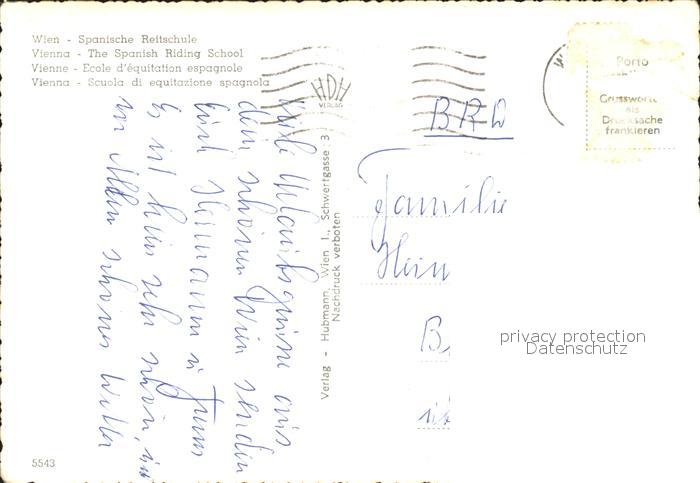 Wien - Spanische Reitschule
Vienna - The Spanish Riding School
Vienne - Ecole d'équitation espagnole
Vienna - Scuola di equitazione spagnola
HDH
VERLAG
Porto
Grusswort
als
Drucksache
frankieren
BRD
Familie
Hein
B
privacy protection
Datenschutz
Verlag - Hubmann, Wien I., Schwertgasse 3
Nachdruck verboten
Viele Urlaubsgrüsse aus
dem schönen Wien senden
Euch Hermann u
Es ist hier sehr schön, ist
in Wien schönes Wetter
5543